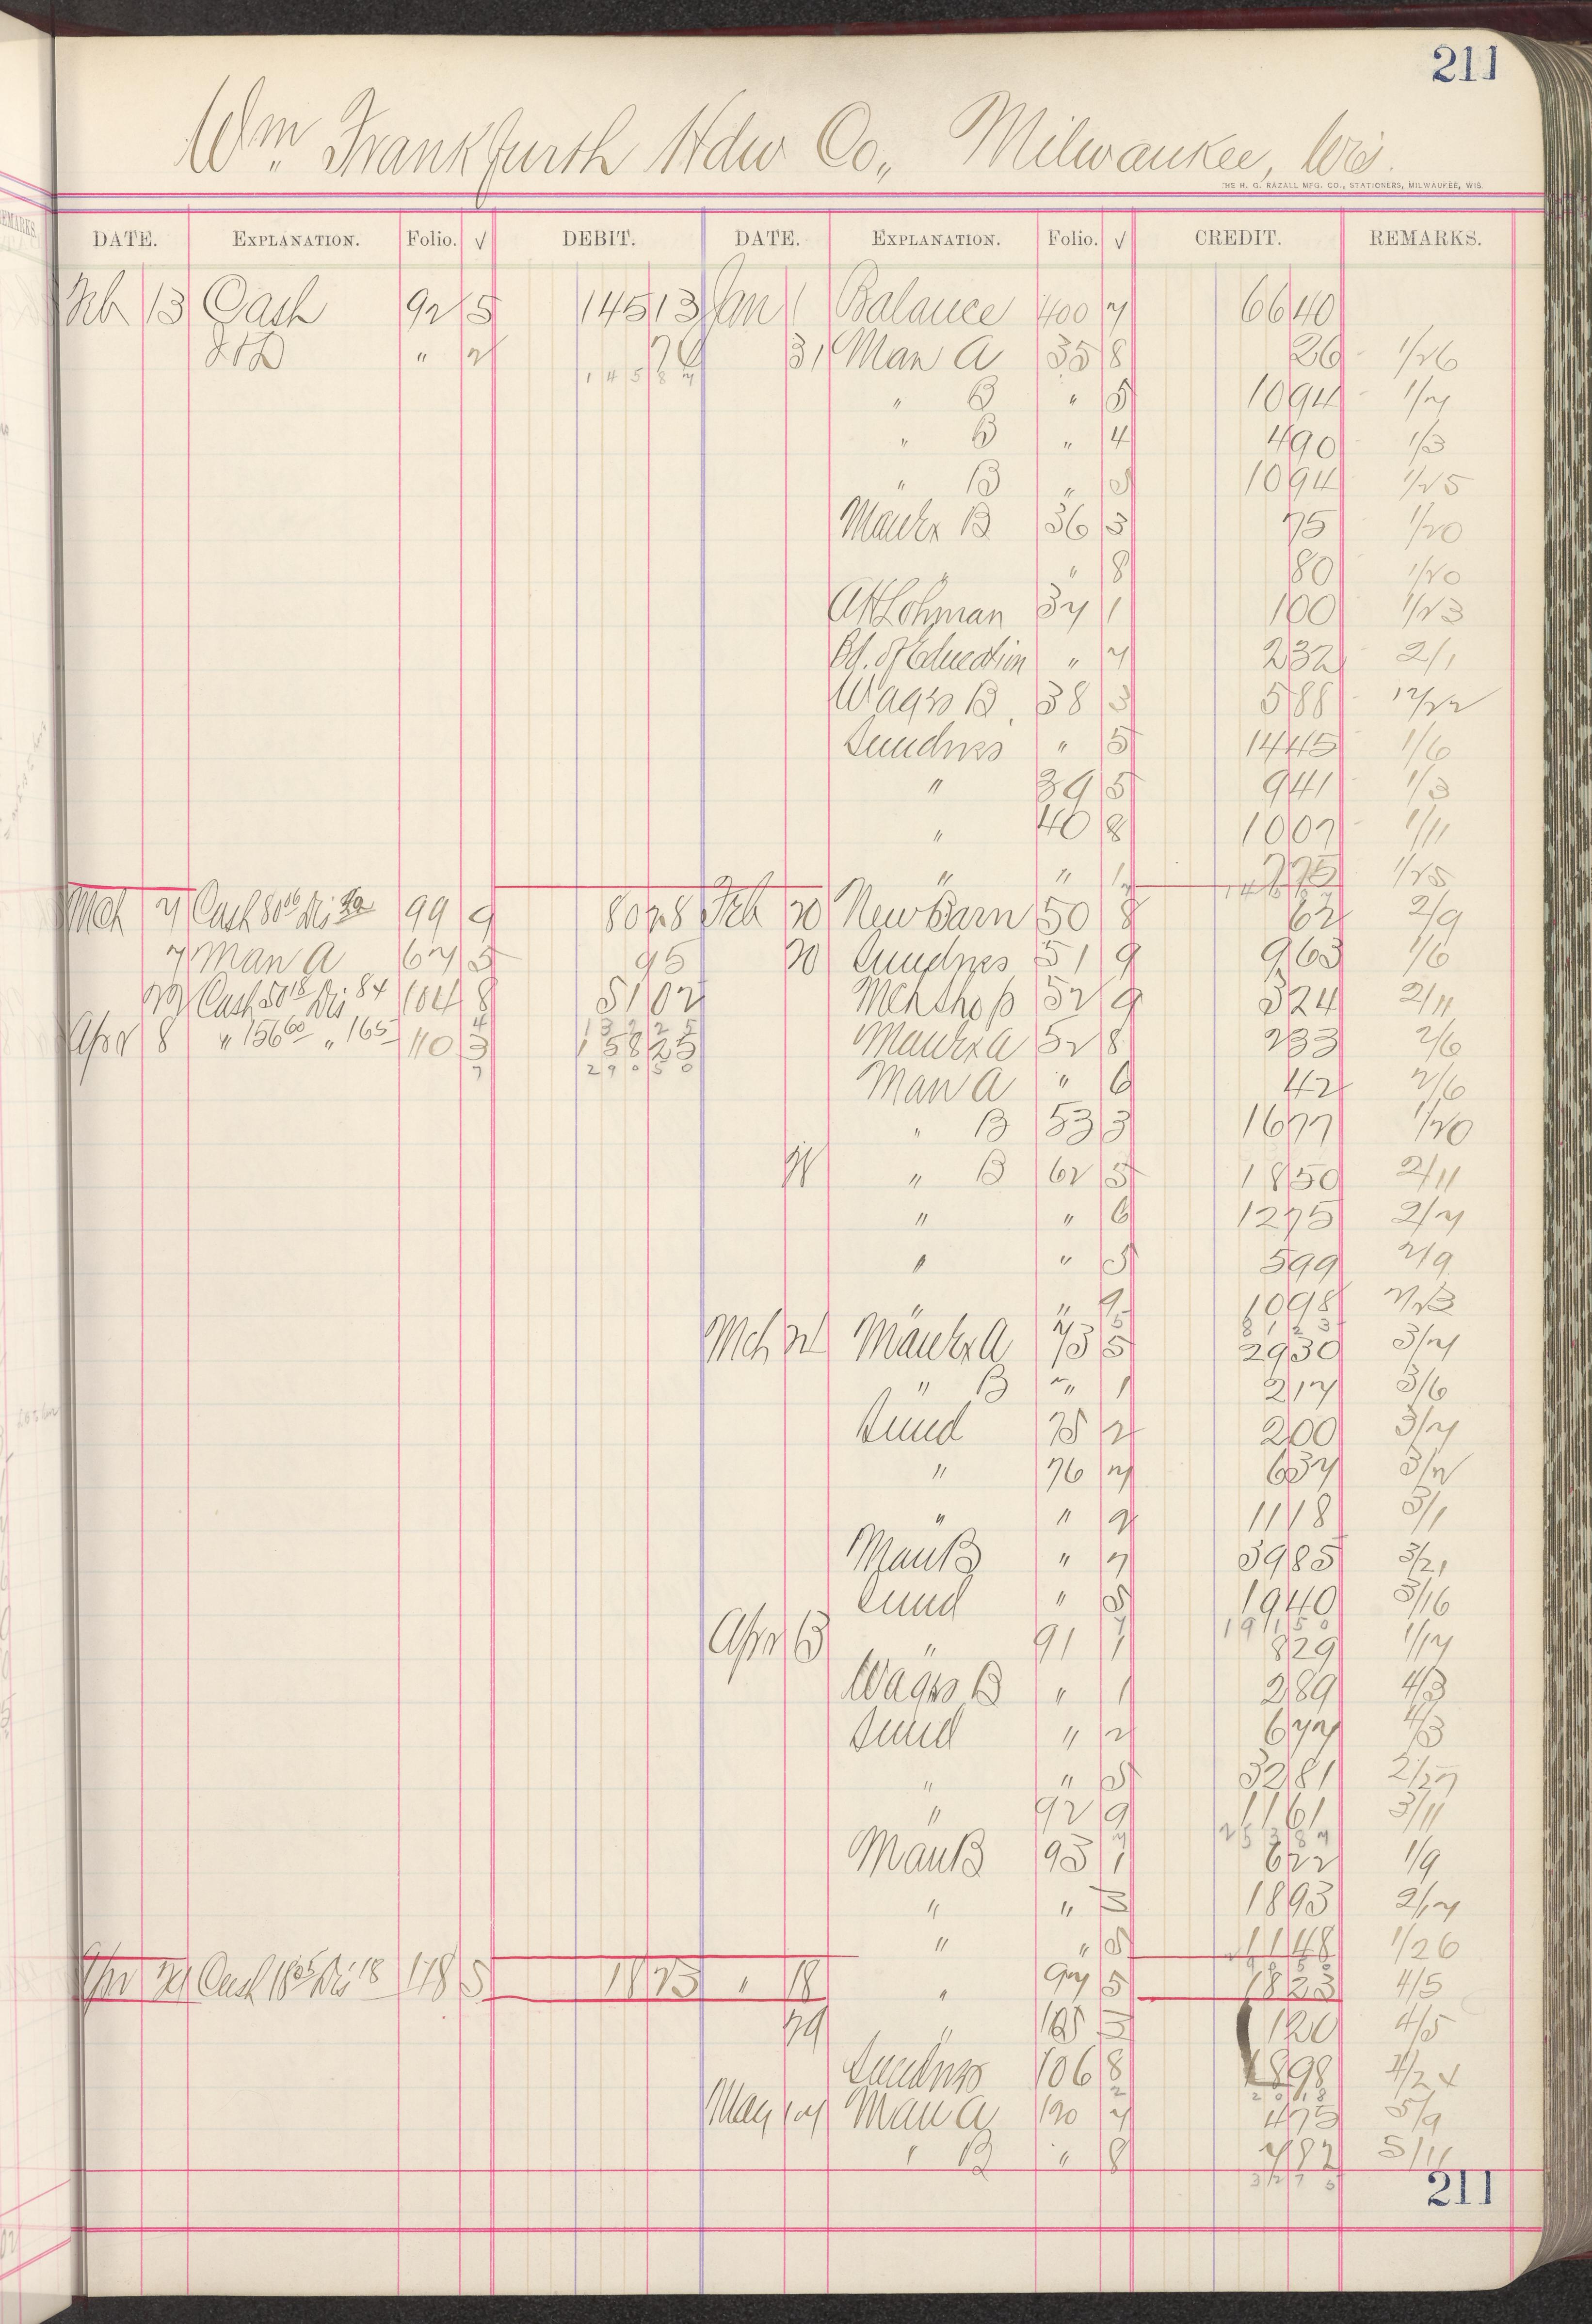 211
Wm. Frankfurth Hdw Co., Milwaukee, Wis.
THE H. G. RAZALL MFG. CO., STATIONERS, MILWAUKEE, WIS.
DATE. EXPLANATION. Folio. √ DEBIT. DATE. EXPLANATION. Folio. √ CREDIT. REMARKS.
Feb 13 Cash 92 5 145 13 Jan 1 Balance 400 7 66 40
" 2 74 31 Man A 35 8 26 1/26
1 4 5 8 7
" B " 5 10 94 1/7
" B " 4 4 90 1/3
" B " 5 10 94 1/25
B 36 3 75 1/20
" 8 80 1/20
A H Lohman 37 1 1 00 1/23
Bd. of Education " 7 2 32 2/1
Wagro B 38 3 5 88 12/22
Sundries " 5 14 45 1/6
" 39 5 9 41 1/3
" 40 8 10 07 1/11
" " 2 75 1/25
Mch 7 Cash 99 9 80 28 Feb 20 New Barn 50 8 62 2/9
7 Man A 67 5 95 20 Sundries 51 9 9 63 1/6
Cash 50 18 Dis 84 104 8 51 02 Mch Shop 52 9 3 24 2/11
Apr 8 " 156 60 " 165 110 3 158 25 A 52 8 2 33 2/6
1 3 2 2 5
2 9 0 5 0
Man A " 6 42 2/6
" B 53 3 16 77 1/20
" B 62 5 18 50 2/11
" " 6 12 75 2/7
" " 5 5 99 2/9
" " 9 10 98
8 1 2 3
Mch A 73 5 29 30 3/7
" B " 1 2 17 3/6
Sund 75 2 2 00 3/7
" 76 7 6 37 3/2
" " 9 11 18 3/1
Man B " 7 39 85 3/21
Sund " 5 19 40 3/16
1 9 1 5 0
Apr 13 " 91 1 8 29 1/17
Wagro B " 1 2 89 4/3
Sund " 2 6 77 4/3
" " 5 32 81 2/27
" 92 9 11 61 3/11
Man B 93 1 6 22 1/9
" " 3 18 93 2/17
" " 5 11 48 1/26
Apr Cash 18 05 Dis 18 118 5 18 23 " 18 " 97 5 18 23 4/5
29 " 105 3 1 20 4/5
Sundries 106 8 18 98
May 17 Man A 120 7 4 75 5/9
" B " 8 7 82 5/11
211